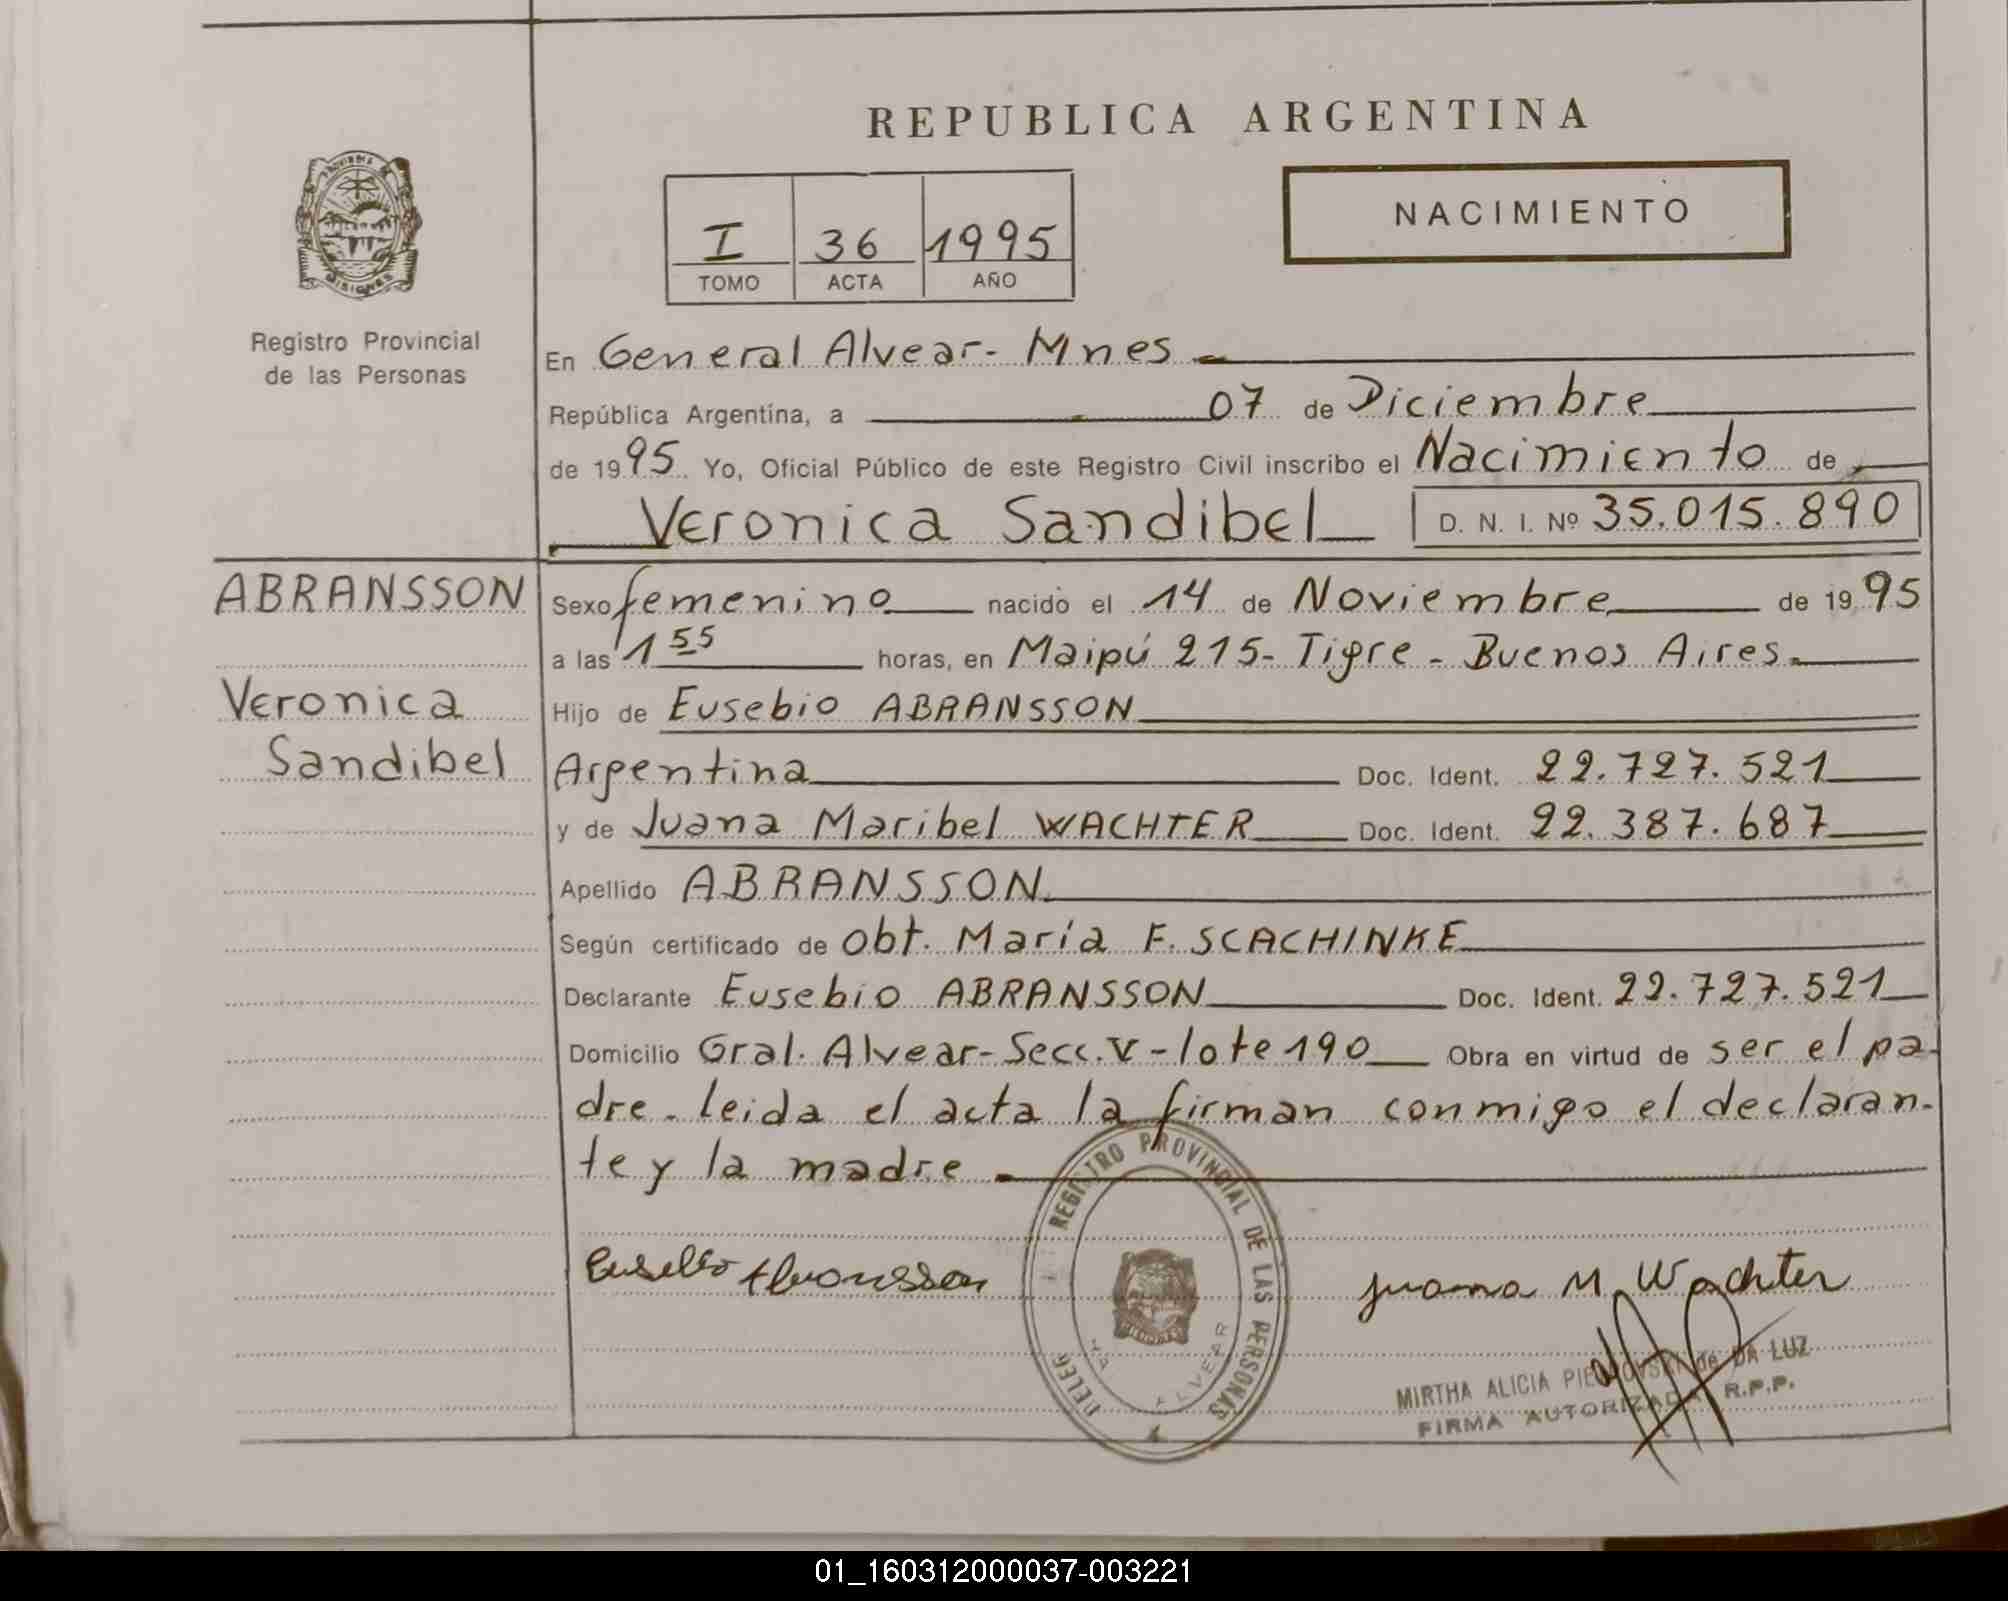 REPUBLICA ARGENTINA
PROVINCIA DE
MISIONES
Registro Provincial
de las Personas
I 36 1995
TOMO ACTA AÑO
NACIMIENTO
En General Alvear - Mnes
República Argentina, a 07 de Diciembre
de 1995 Yo, Oficial Público de este Registro Civil inscribo el Nacimiento de
Veronica Sandibel D. N. I. Nº 35.015.890
ABRANSSON
Veronica
Sandibel
Sexo femenino nacido el 14 de Noviembre de 1995
a las 1 55 horas, en Maipú 215- Tigre - Buenos Aires.
Hijo de Eusebio ABRANSSON
Argentina Doc. Ident. 22.727.521
y de Juana Maribel WACHTER Doc. Ident. 22.387.687
Apellido ABRANSSON
Según certificado de Obt. María F. SCACHINKE
Declarante Eusebio ABRANSSON Doc. Ident. 22.727.521
Domicilio Gral. Alvear - Secc. V - lote 190 Obra en virtud de ser el pa-
dre - leida el acta la firman conmigo el declaran-
te y la madre .
Eusebio Abransson
Juana M. Wachter
REGISTRO PROVINCIAL DE LAS PERSONAS
DELEG
ALVEAR
MIRTHA ALICIA de DA LUZ
FIRMA AUTORIZADA R.P.P.
01_160312000037-003221